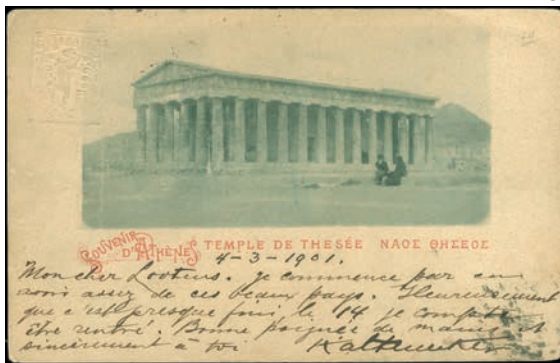 SOUVENIR D'ATHÈNES
TEMPLE DE THESÉE ΝΑΟΣ ΘΗΣΕΟΣ
4-3-1901.
Mon cher Lootens. Je commence par en
avoir assez de ces beaux pays. Heureusement
que c'est presque fini, le 14 je compte
être rentré. Bonne poignée de mains et
sincèrement à toi